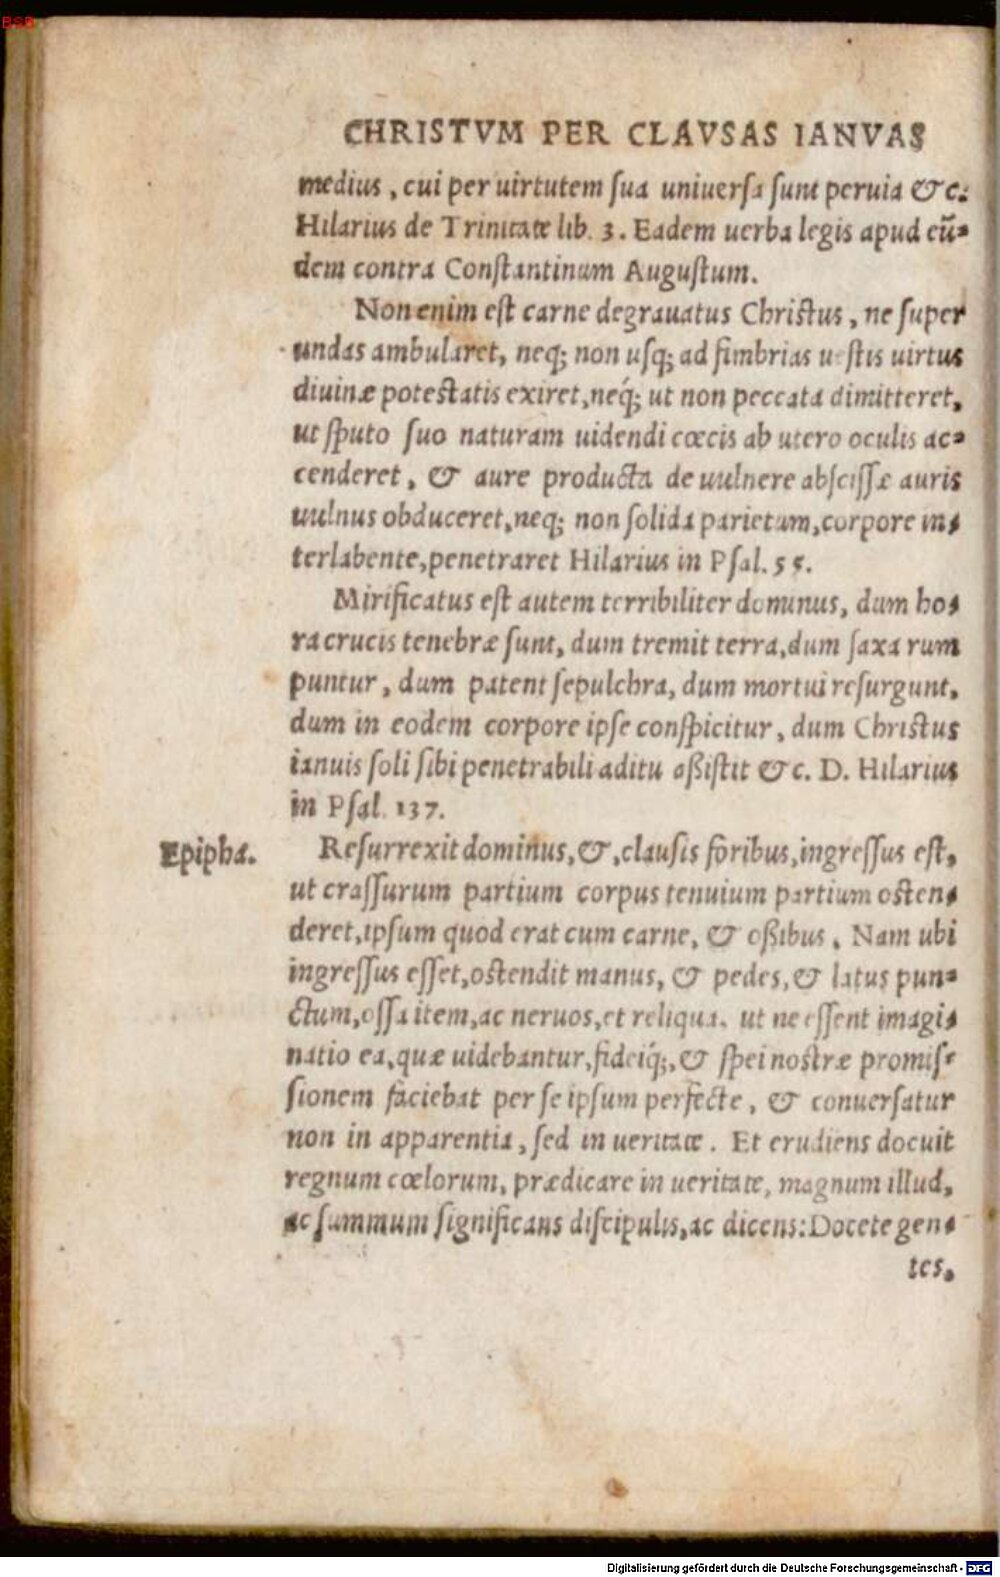 BSB
CHRISTVM PER CLAVSAS IANVAS
medius, cui per uirtutem ſua uniuerſa ſunt peruia &c.
Hilarius de Trinitate lib. 3. Eadem uerba legis apud eũ-
dem contra Conſtantinum Auguſtum.
Non enim eſt carne degrauatus Chriſtus, ne ſuper
undas ambularet, neq; non uſq; ad fimbrias ueſtis uirtus
diuinæ poteſtatis exiret, neq́; ut non peccata dimitteret,
ut ſputo ſuo naturam uidendi cœcis ab utero oculis ac-
cenderet, & aure producta de uulnere abſciſſæ auris
uulnus obduceret, neq; non ſolida parietum, corpore in-
terlabente, penetraret Hilarius in Pſal. 55.
Mirificatus eſt autem terribiliter dominus, dum ho-
ra crucis tenebræ ſunt, dum tremit terra, dum ſaxa rum
puntur, dum patent ſepulchra, dum mortui reſurgunt,
dum in eodem corpore ipſe conſpicitur, dum Chriſtus
ianuis ſoli ſibi penetrabili aditu aßiſtit &c. D. Hilarius
in Pſal. 137.
Epipha.
Reſurrexit dominus, &, clauſis foribus, ingreſſus eſt,
ut craſſurum partium corpus tenuium partium oſten-
deret, ipſum quod erat cum carne, & oßibus. Nam ubi
ingreſſus eſſet, oſtendit manus, & pedes, & latus pun-
ctum, oſſa item, ac neruos, et reliqua. ut ne eſſent imagi-
natio ea, quæ uidebantur, fideiq́;, & ſpei noſtræ promiſ-
ſionem faciebat per ſe ipſum perfecte, & conuerſatur
non in apparentia, ſed in ueritate. Et erudiens docuit
regnum cœlorum, prædicare in ueritate, magnum illud,
ac ſummum ſignificans diſcipulis, ac dicens: Docete gen-
tes,
Digitalisierung gefördert durch die Deutsche Forschungsgemeinschaft - DFG